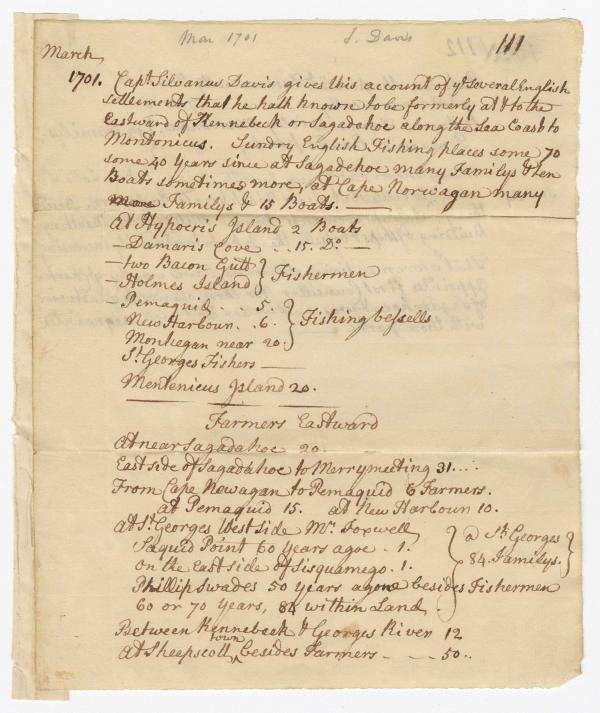 Mar 1701 S. Davis 111
March
1701. Capt. Silvanus Davis gives this account of ye. several English
settlements that he hath known to be formerly at & to the
Eastward of Kennebeck or Sagadahoc along the Sea Coast to
Montonicus. Sundry English Fishing places some 70
some 40 years since at Sagadehoc many Familys & ten
Boats sometimes more, at Cape Norwagan many
Familys & 15 Boats. —
At Hypocris Island 2 Boats
— Damaris Cove .. 15. Do. —
— two Bacon Gutt } Fishermen
— Holmes Island
— Pemaquid . . 5. } Fishing vessells
New Harbour . . 6.
Monhegan near 20.
St. Georges Fishers —
Mentenicus Island 20.
Farmers Eastward
At near Sagadahoc 20.
East side of Sagadahoc to Merrymeeting 31....
From Cape Newagan to Pemaquid 6 Farmers.
at Pemaquid 15. at New Harbour 10.
At St. Georges West side Mr. Foxwell } @ St. Georges
Saquid Point 60 years agoe . 1. 84. Familys. }
on the East side of Sisquamego . 1.
Phillip Swades 50 years agone besides Fishermen
60 or 70 years, 84 within Land .
Between Kennebeck & Georges River 12
At Sheepscott town, besides Farmers - - - 50..